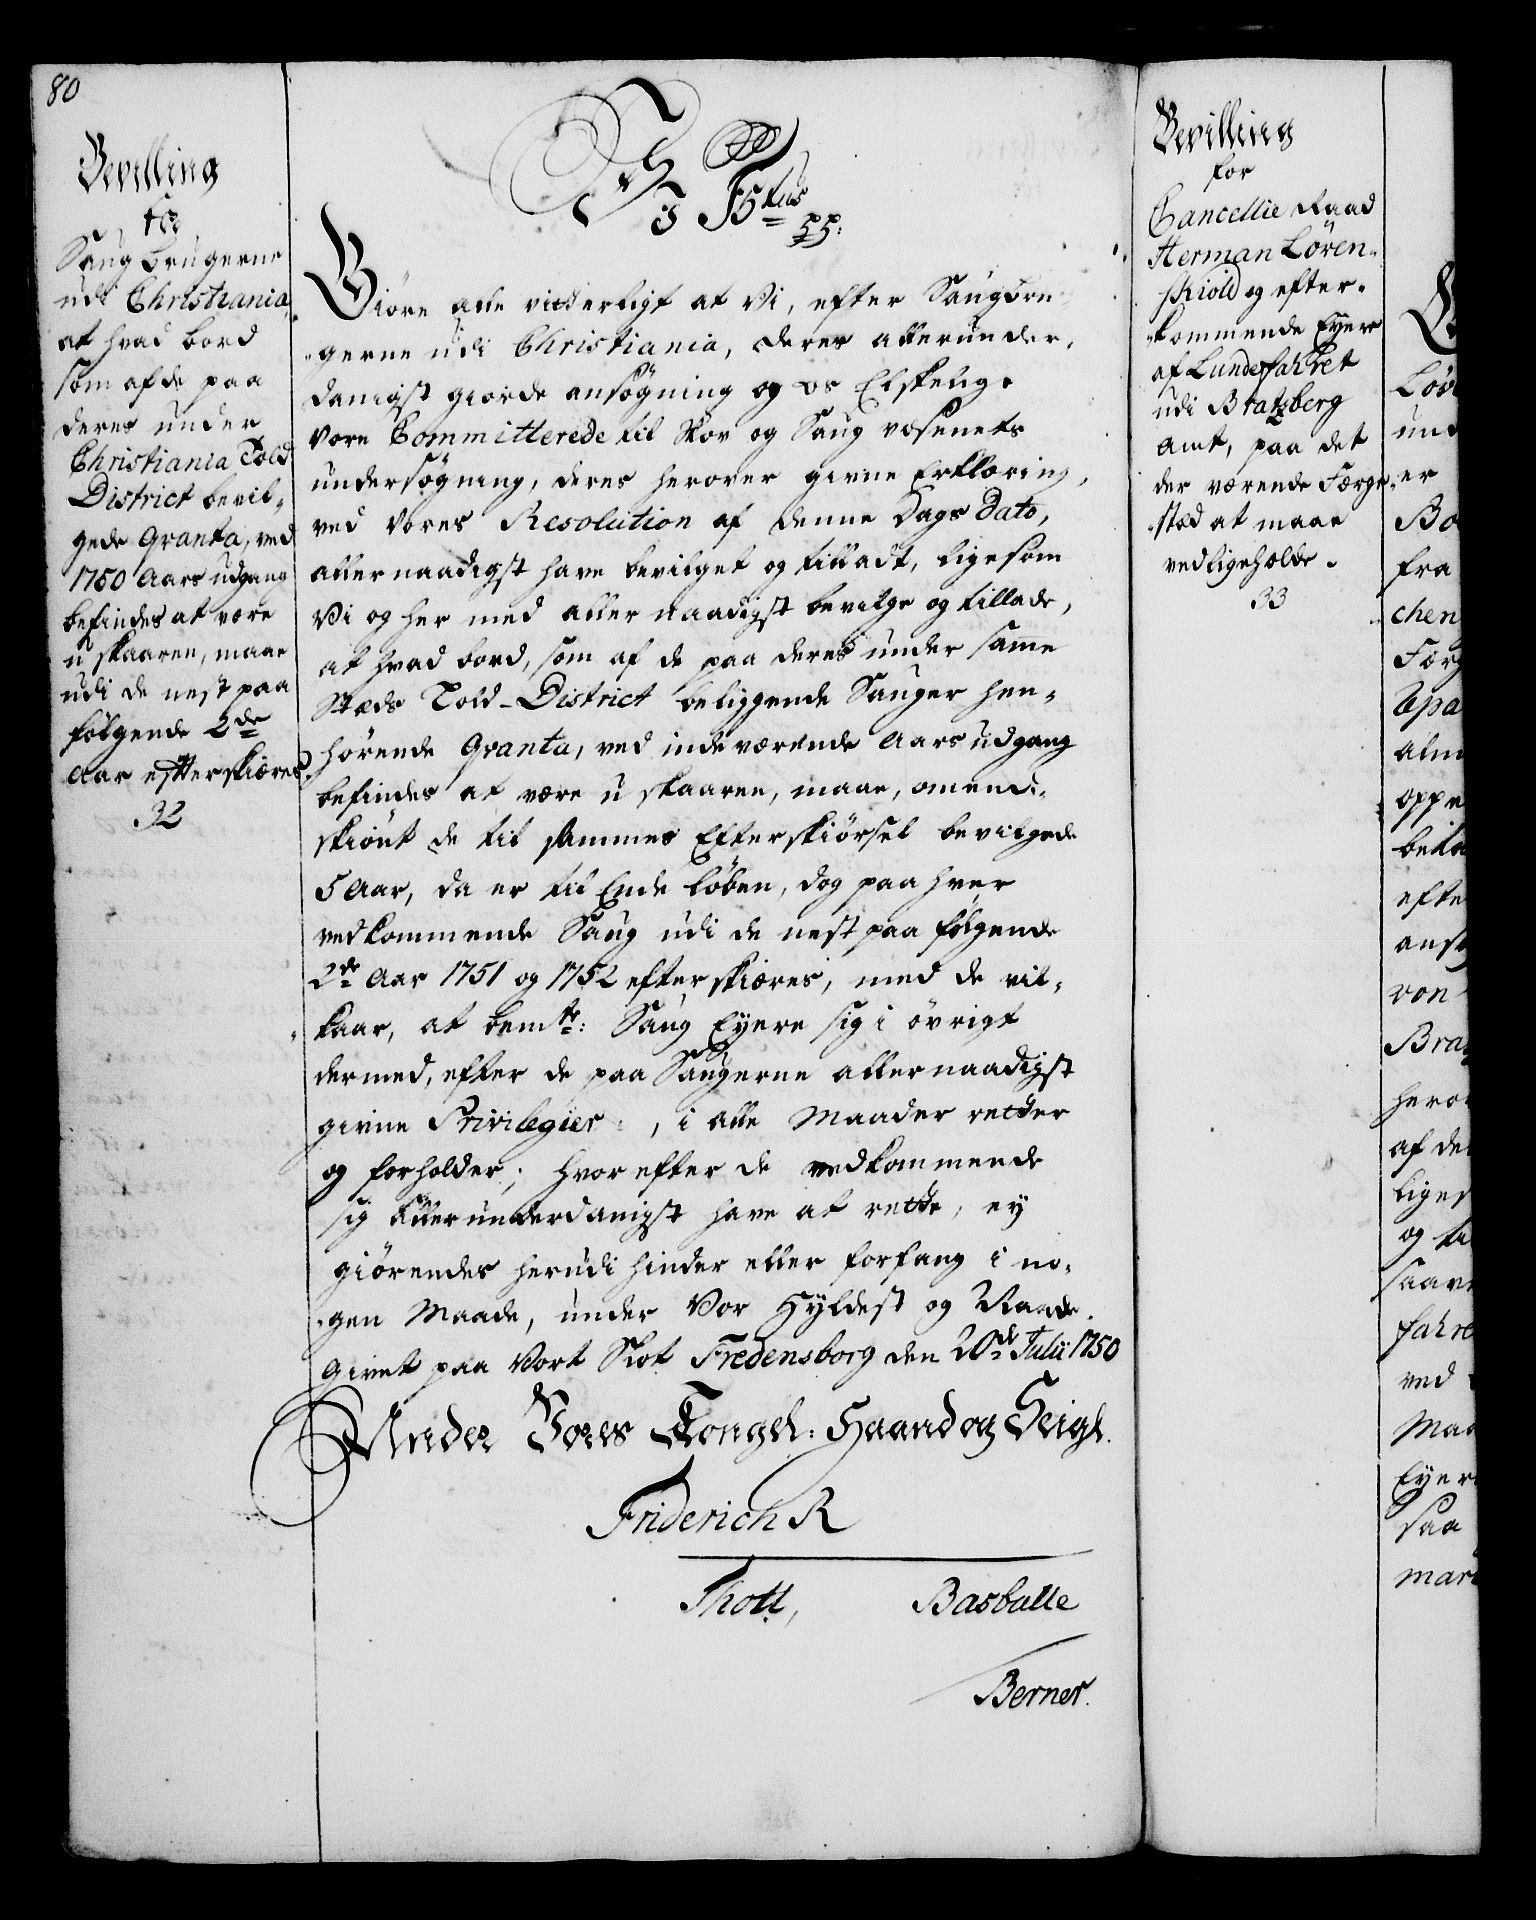 80
Bevilling
for
Saug brugerne
udi Christiania,
at hvad bord
som af de paa
deres under
Christiania Told
District bevil-
gede Qvanta, ved
1750 Aars udgang
befindes at være
u skaaren, maae
udi de nest paa
følgende 2de
Aar effterskiæres.
32
Vi F 5tus
pp:
Giøre alle vitterligt at Vi, efter Saugbru-
gerne udi Christiania, deres allerunder-
danigst giorde ansøgning og os Elskelige
Vore Committerede til Skov og Saug væsenets
undersøgning, deres herover givne Erklæring,
ved Vores Resolution af denne Dags Dato,
allernaadigst have bevilget og tilladt, ligesom
Vi og her med aller naadigst bevilge og tillade,
at hvad bord, som af de paa deres under samme
Stæds Told-District beliggende Sauger hen-
hørende Qvanta, ved inde værende Aars udgang
befindes at være u skaaren, maae, omend-
skiønt de til sammes Efterskiørsel bevilgede
5 Aar, da er til Ende løben, dog paa hver
vedkommende Saug udi de nest paa følgende
2de Aar 1751 og 1752 efter skiæres, med de vil-
kaar, at bemte: Saug Eyere sig i øvrigt
dermed, efter de paa Saugerne aller naadigst
givne Privilegier, i alle Maader retter
og forholder; hvor efter de vedkommende
sig allerunderdanigst have at rette, ey
giørendes herudi hinder eller forfang i no-
gen Maade, under Vor Hyldest og Naade.
Givet paa Vort Slot Fredensborg den 20de Julii 1750
Under Vores Kongel: Haand og Seigl.
Friderich R
Thott, Basballe
Berner.
Bevilling
for
Cancellie Raad
Herman Løven-
skiold og efter-
kommende Eyere
af Lundefahret
udi Bratzberg
Amt, paa det
der værende Færge-
stæd at maae
vedligeholde.
33
Løv
und
er
Bo
fra
chen
Færg
Opa
alm
oppe
beta
efte
ansø
von
Brat
hero
af de
liges
og ti
saav
fahre
ved
Maa
Eyer
saa
mari